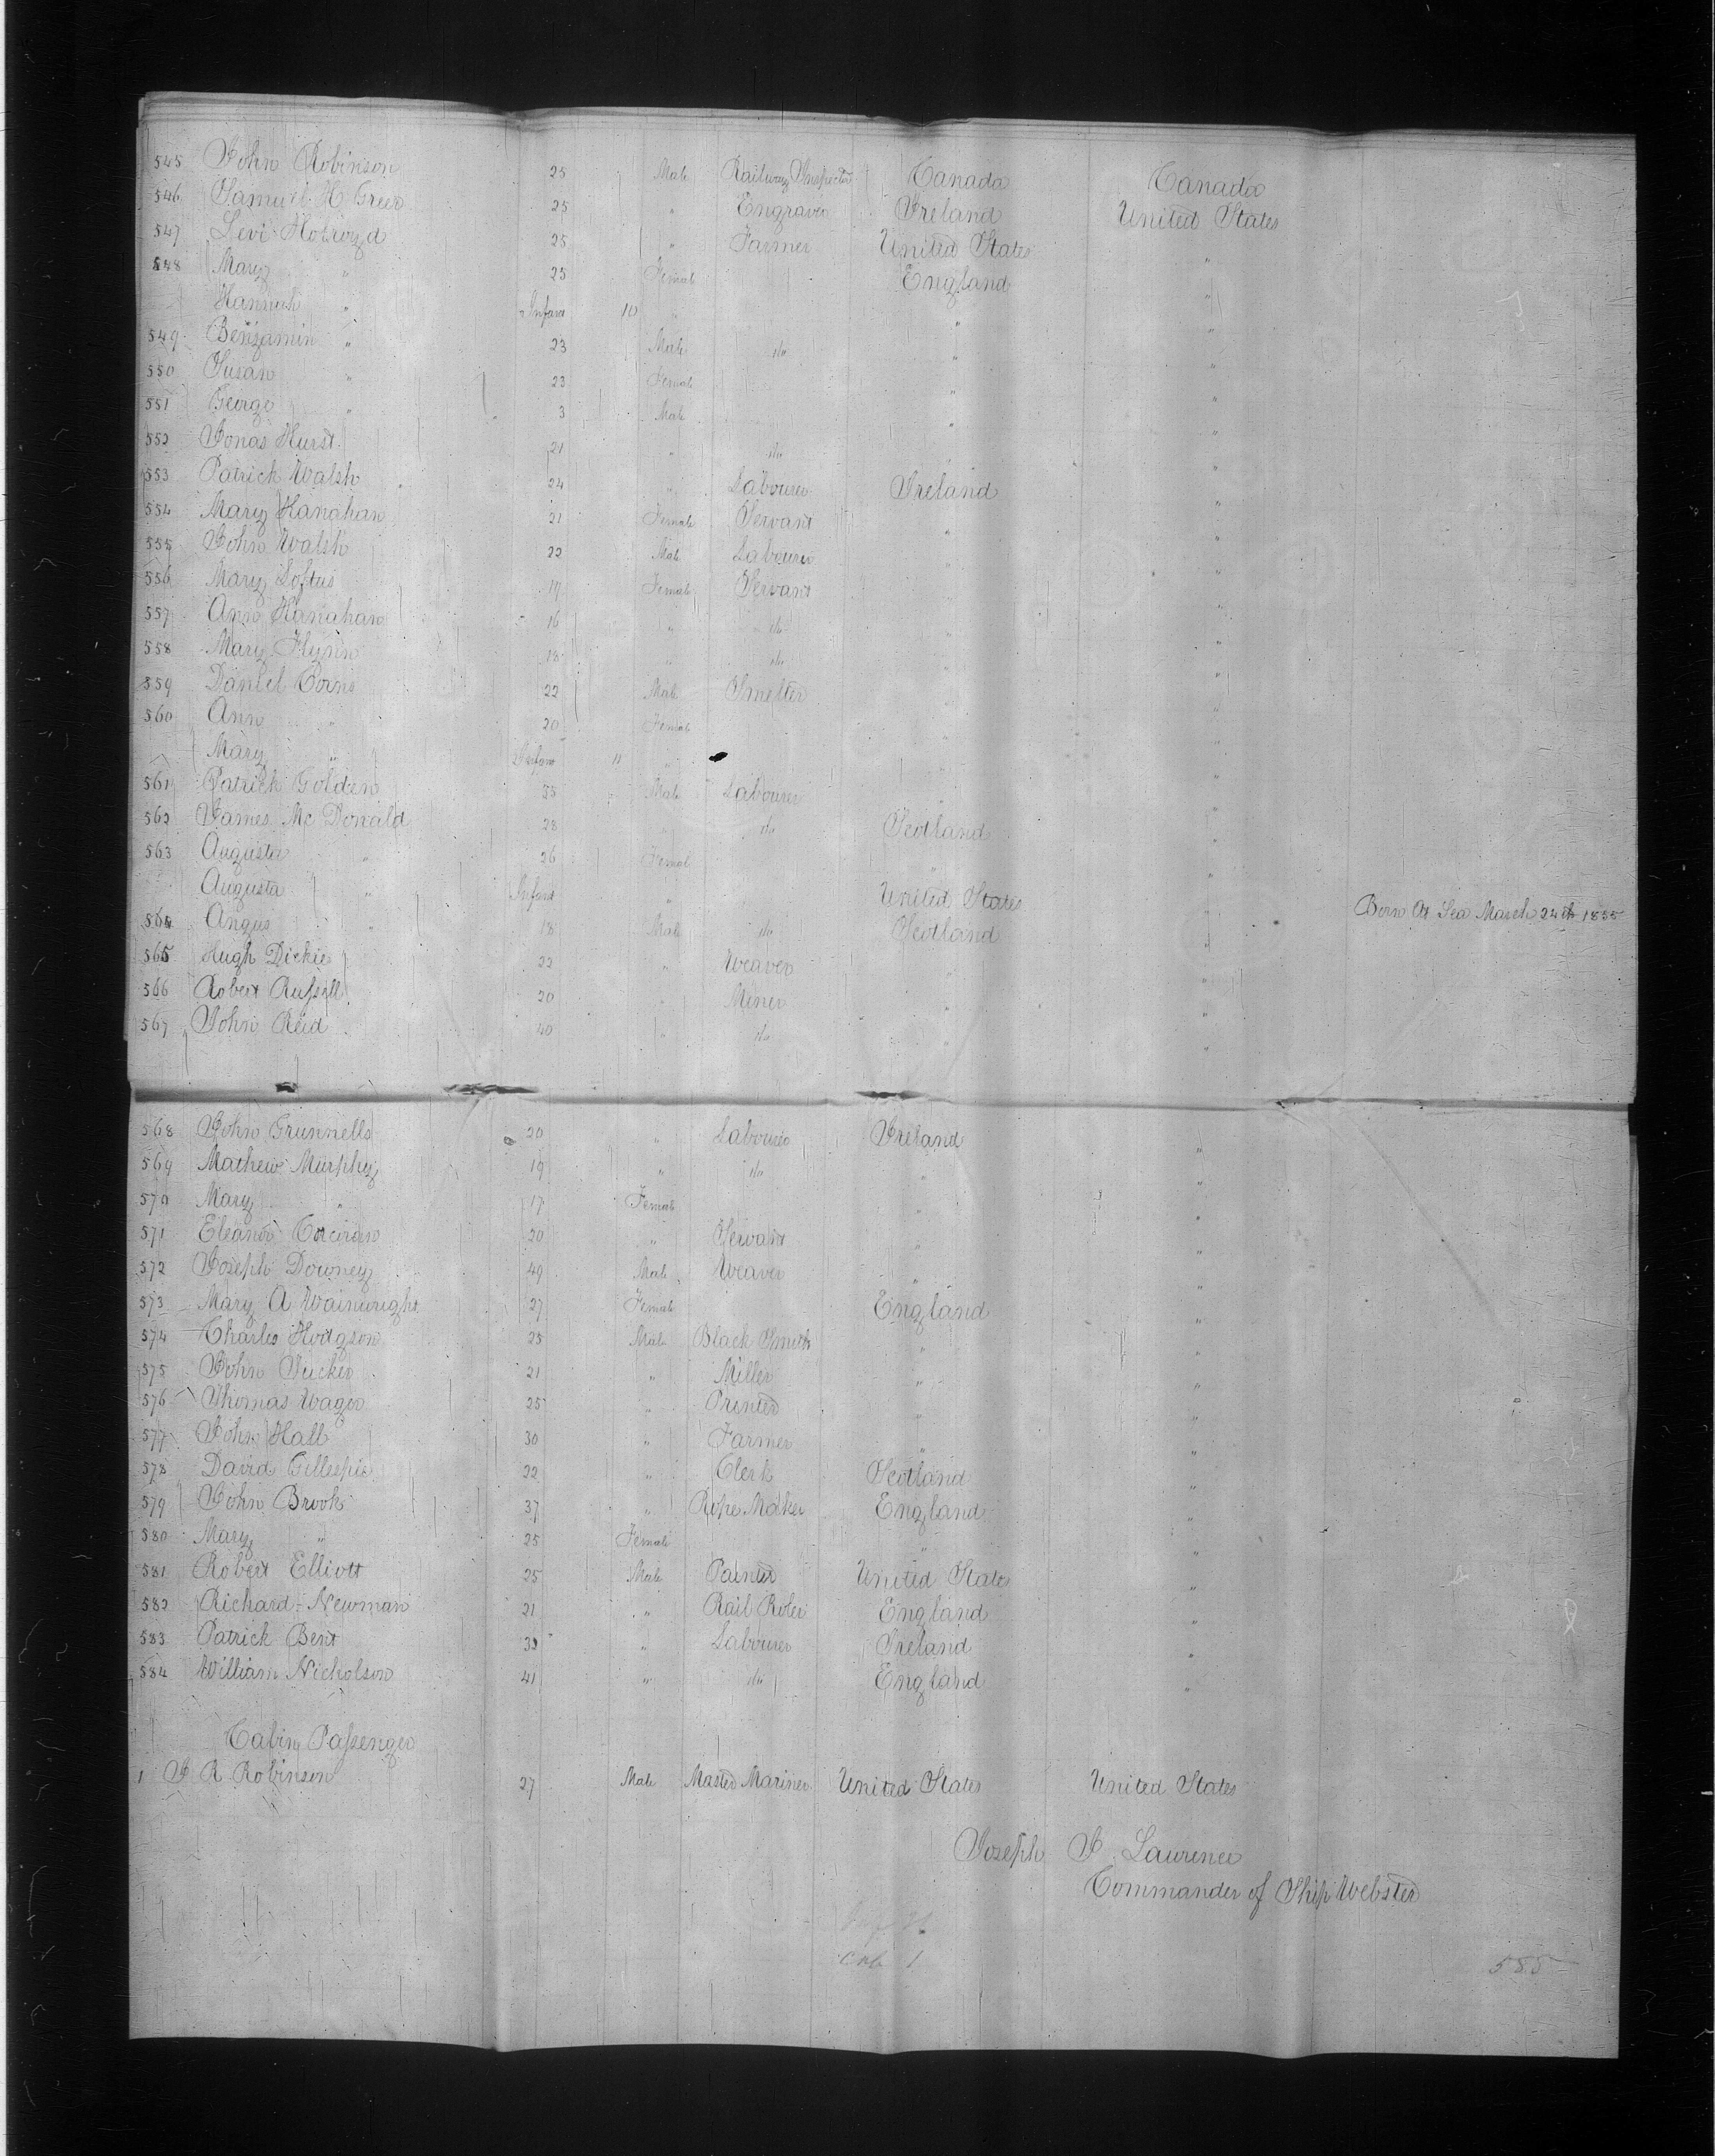 545 John Robinson 25 Male Railway Inspector Canada Canada
546 Samuel H Greer 25 " Engraver Ireland United States
547 Levi Holroyd 25 " Farmer United States "
548 Mary " 25 Female England "
Hannah " Infant 10 " " "
549 Benjamin " 23 Male do " "
550 Susan " 23 Female " "
551 George " 3 Male " "
552 Jonas Hurst 21 " do "
553 Patrick Walsh 24 " Labourer Ireland "
554 Mary Hanahan 21 Female Servant " "
555 John Walsh 22 Male Labourer " "
556 Mary Loftus 19 Female Servant " "
557 Ann Hanahan 16 " do " "
558 Mary Flynn 18 " do " "
559 Daniel Corns 22 Male Smelter "
560 Ann " 20 Female "
Mary " Infant 11 " "
561 Patrick Golden 35 Male Labourer "
562 James Mc Donald 28 " do Scotland "
563 Augusta " 26 Female " "
Augusta " Infant " United States " Born At Sea March 24th 1855
564 Angus " 18 Male do Scotland "
565 Hugh Dickie 22 " Weaver " "
566 Robert Russell 20 " Miner " "
567 John Reid 40 " do " "
568 John Grunnells 20 " Labourer Ireland "
569 Mathew Murphy 19 " do " "
570 Mary " 17 Female " "
571 Eleanor Corcoran 20 " Servant " "
572 Joseph Downey 49 Male Weaver " "
573 Mary A Wainwright 27 Female England "
574 Charles Hodgson 25 Male Black Smith " "
575 John Tucker 21 " Miller " "
576 Thomas Wager 25 " Printer " "
577 John Hall 30 " Farmer " "
578 David Gillespie 22 " Clerk Scotland "
579 John Brook 37 " Rope Maker England "
580 Mary " 25 Female " "
581 Robert Elliott 25 Male Painter United States "
582 Richard Newman 21 " Rail Roler England "
583 Patrick Bent 30 " Labourer Ireland "
584 William Nicholson 41 " do England "
Cabin Passenger
1 J R Robinson 27 Male Master Mariner United States United States
Joseph J. Laurence
Commander of Ship Webster
Cab 1
585